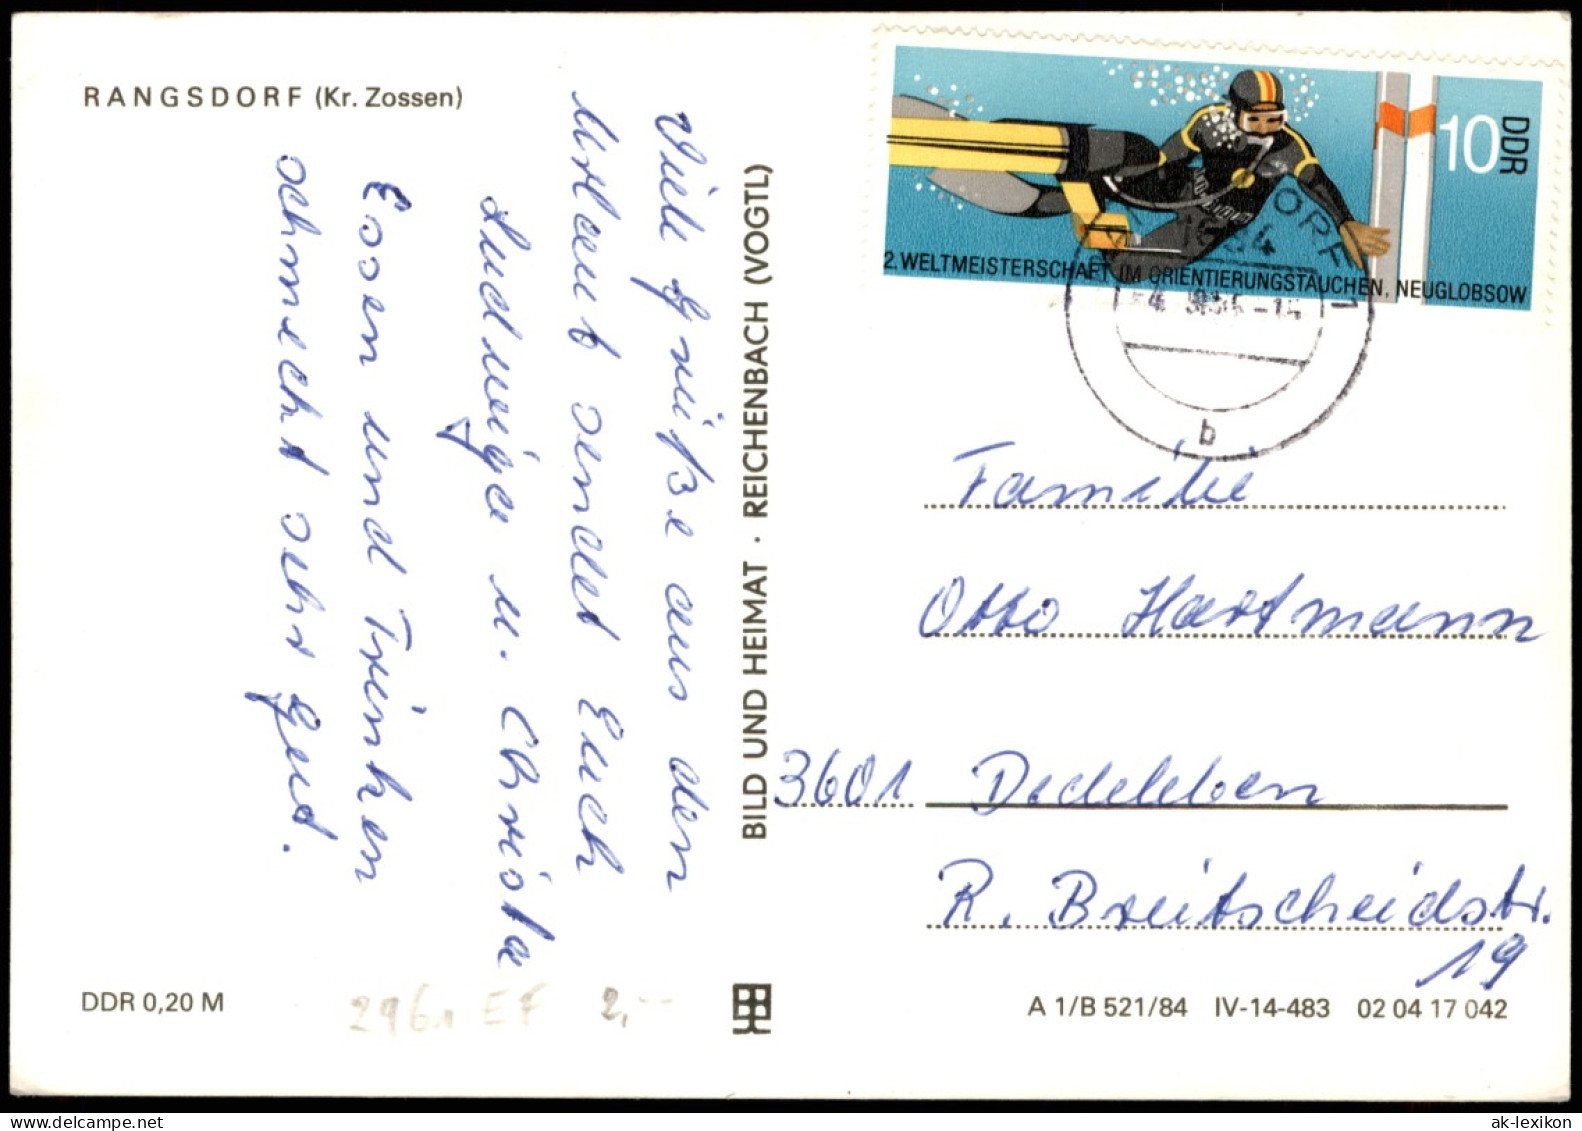 RANGSDORF (Kr. Zossen)
Viele Grüße aus dem
Urlaub sendet Euch
Ludwiga u. Christa
Essen und Trinken
schmeckt sehr gut.
BILD UND HEIMAT · REICHENBACH (VOGTL)
10 DDR
2. WELTMEISTERSCHAFT IM ORIENTIERUNGSTAUCHEN, NEUGLOBSOW
b
Familie
Otto Hartmann
3601 Dedeleben
R. Breitscheidstr.
19
DDR 0,20 M
2961 EF 2,--
A 1/B 521/84 IV-14-483 02 04 17 042
© ak-lexikon